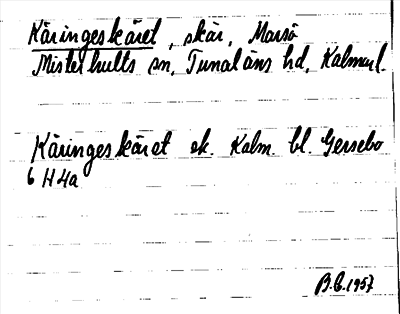 Käringeskäret, skär, Marsö
Misterhults sn, Tunaläns hd, Kalmar l.
Käringeskäret ek. Kalm. bl. Gersebo
6 H 4a
B.C. 1957